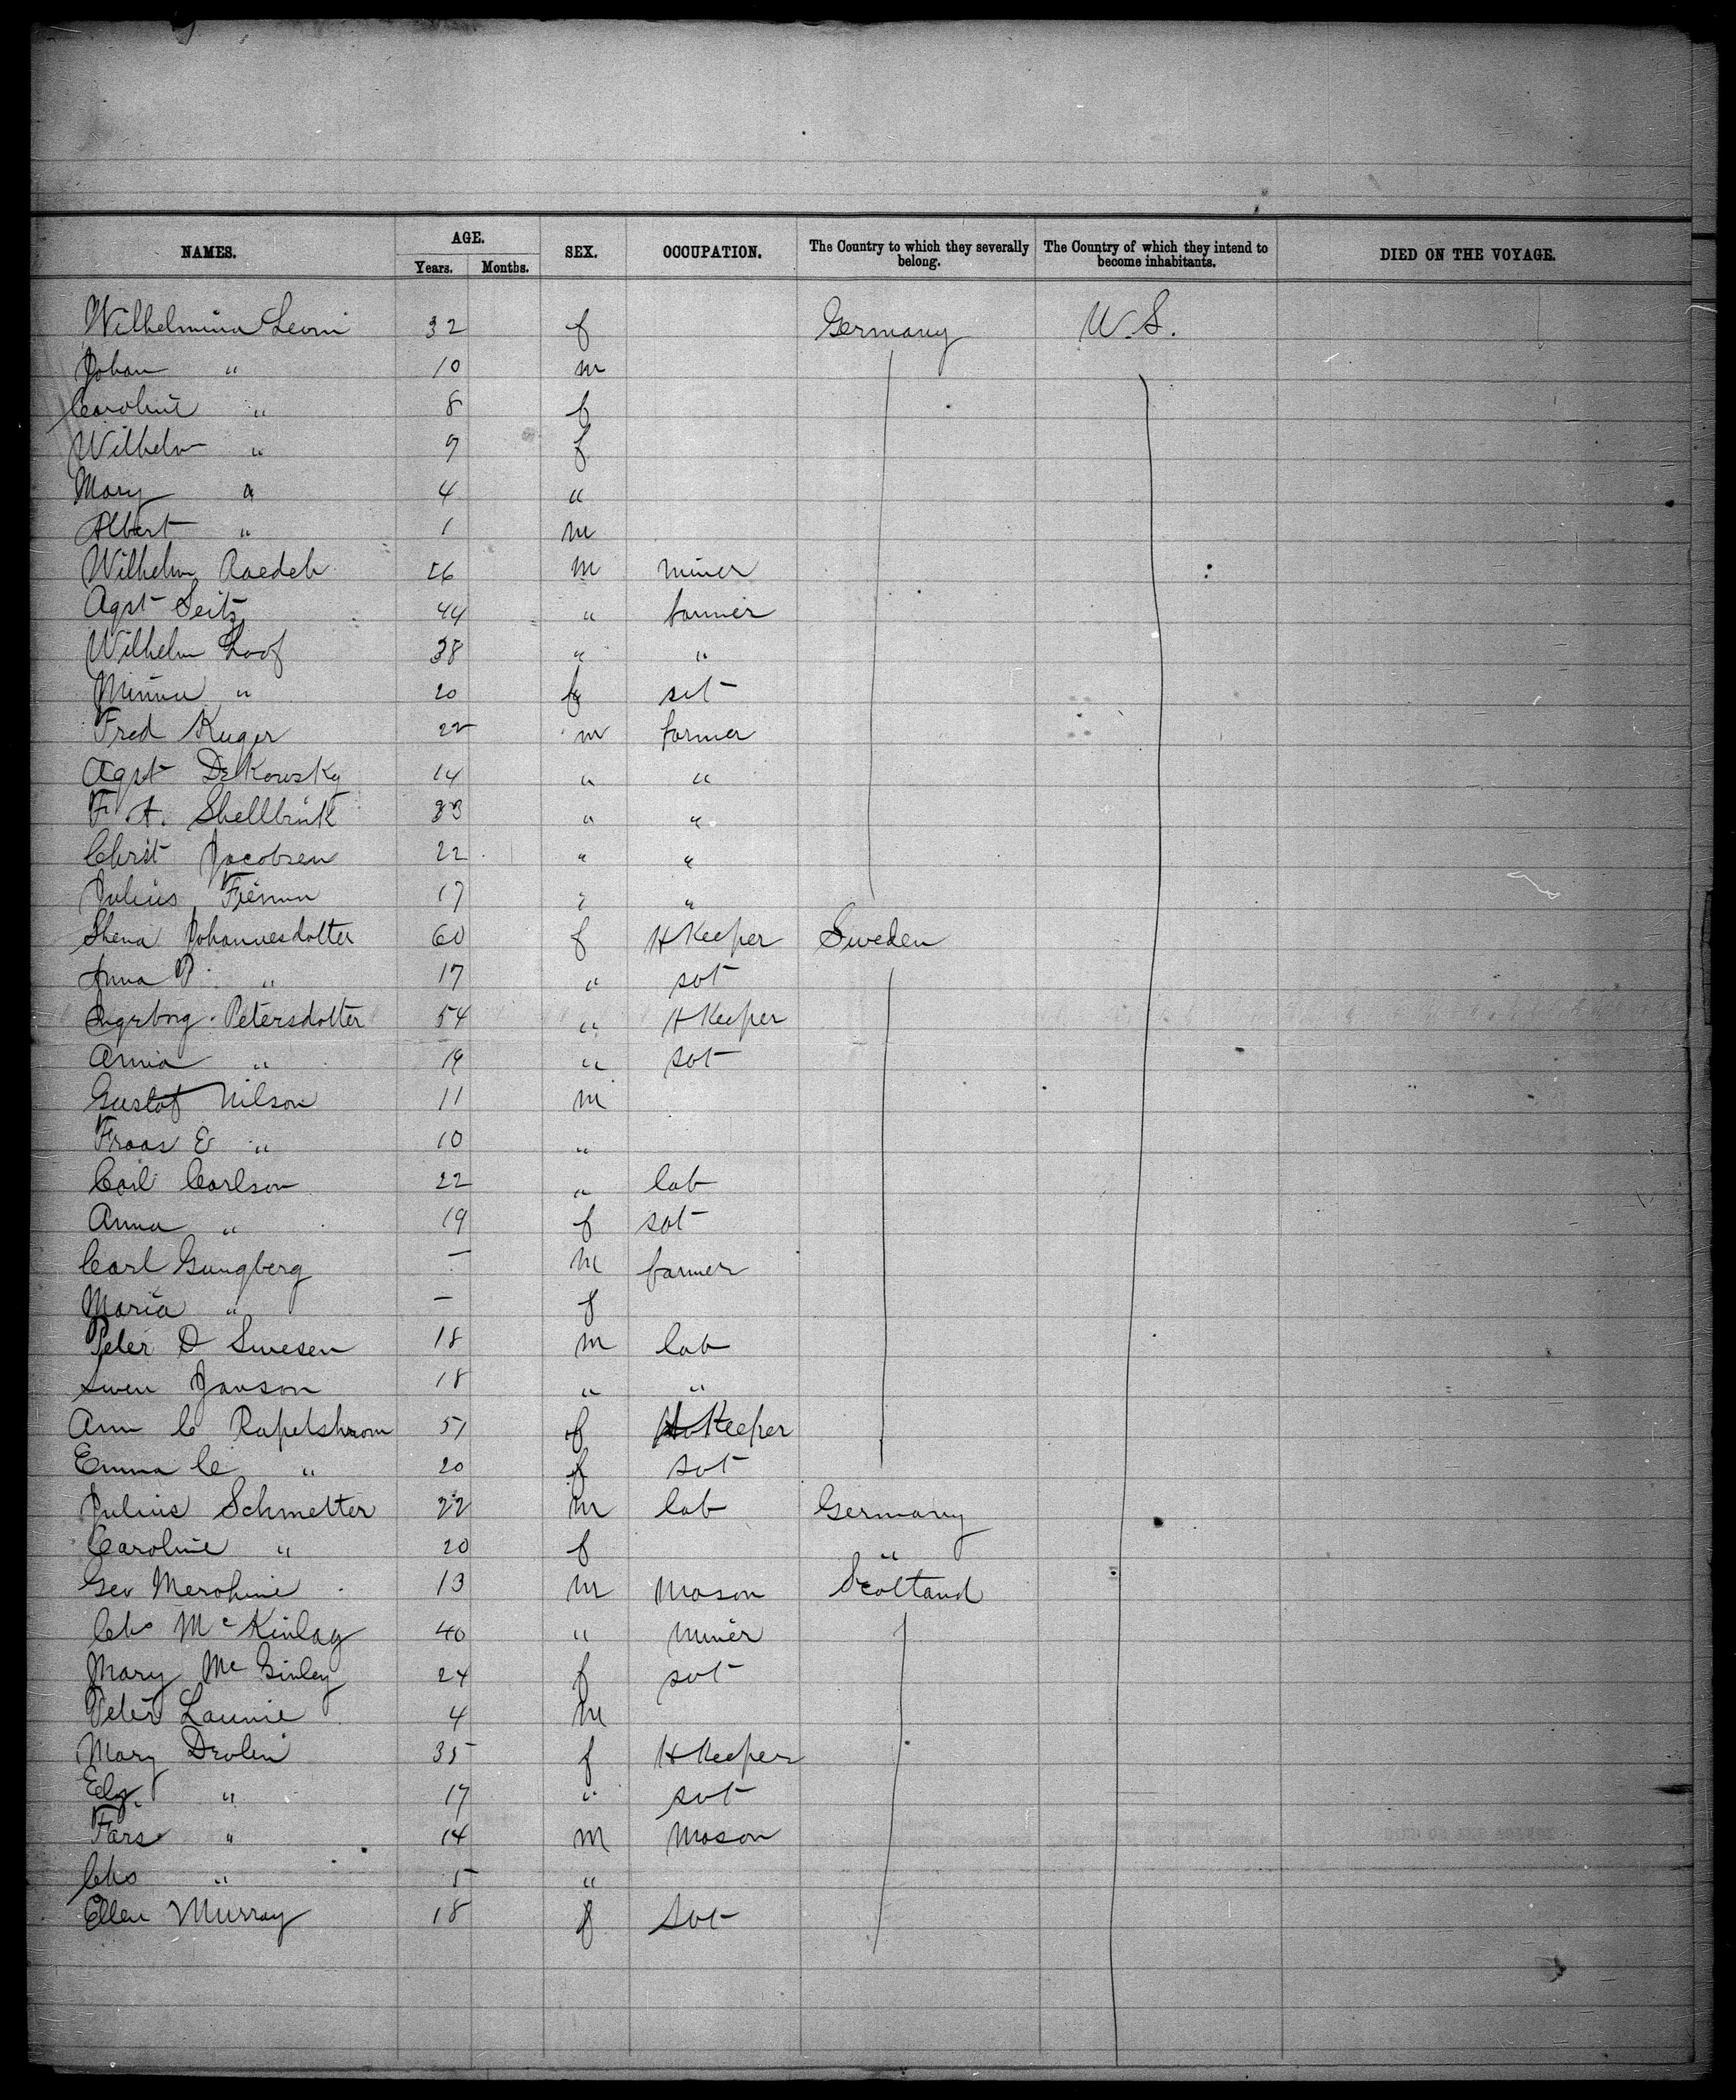 NAMES. AGE. SEX. OCCUPATION. The Country to which they severally belong. The Country of which they intend to become inhabitants. DIED ON THE VOYAGE.
Years. Months.
Wilhelmina 32 f Germany U.S.
Johan " 10 m
Caroline " 8 f
Wilhelm " 9 f
Mary " 4 "
Albert " 1 m
Wilhelm 26 m miner
Agst Seitz 44 " farmer
Wilhelm Loof 38 " "
Minna " 20 f
Fred Kuger 22 m farmer
Agst DeKowsky 14 " "
F. A. Shellbrik 33 " "
Christ Jacobsen 22 " "
Julius 17 " "
Shena Johannesdotter 60 f HKeeper Sweden
Anna P. " 17 " sot
Ingeborg Petersdotter 54 " HKeeper
Anna " 19 " sot
Gustof Nilson 11 m
Fraas E " 10 "
Carl Carlson 22 " lab
Anna " 19 f sot
Carl Gungberg — m farmer
Maria " — f
Peter D Swesen 18 m lab
Swen Janson 18 " "
Ann C Rapelshrom 51 f HKeeper
Emma C " 20 f sot
Julius Schmetter 22 m lab Germany
Caroline " 20 f "
Geo 13 m Mason Scotland
Chs McKinlay 40 " miner
Mary McGinley 24 f sot
Peter Launie 4 m
Mary Devlin 35 f HKeeper
Elz. " 17 " sot
" 14 m Mason
Chs " 5 "
Ellen Murray 18 f sot